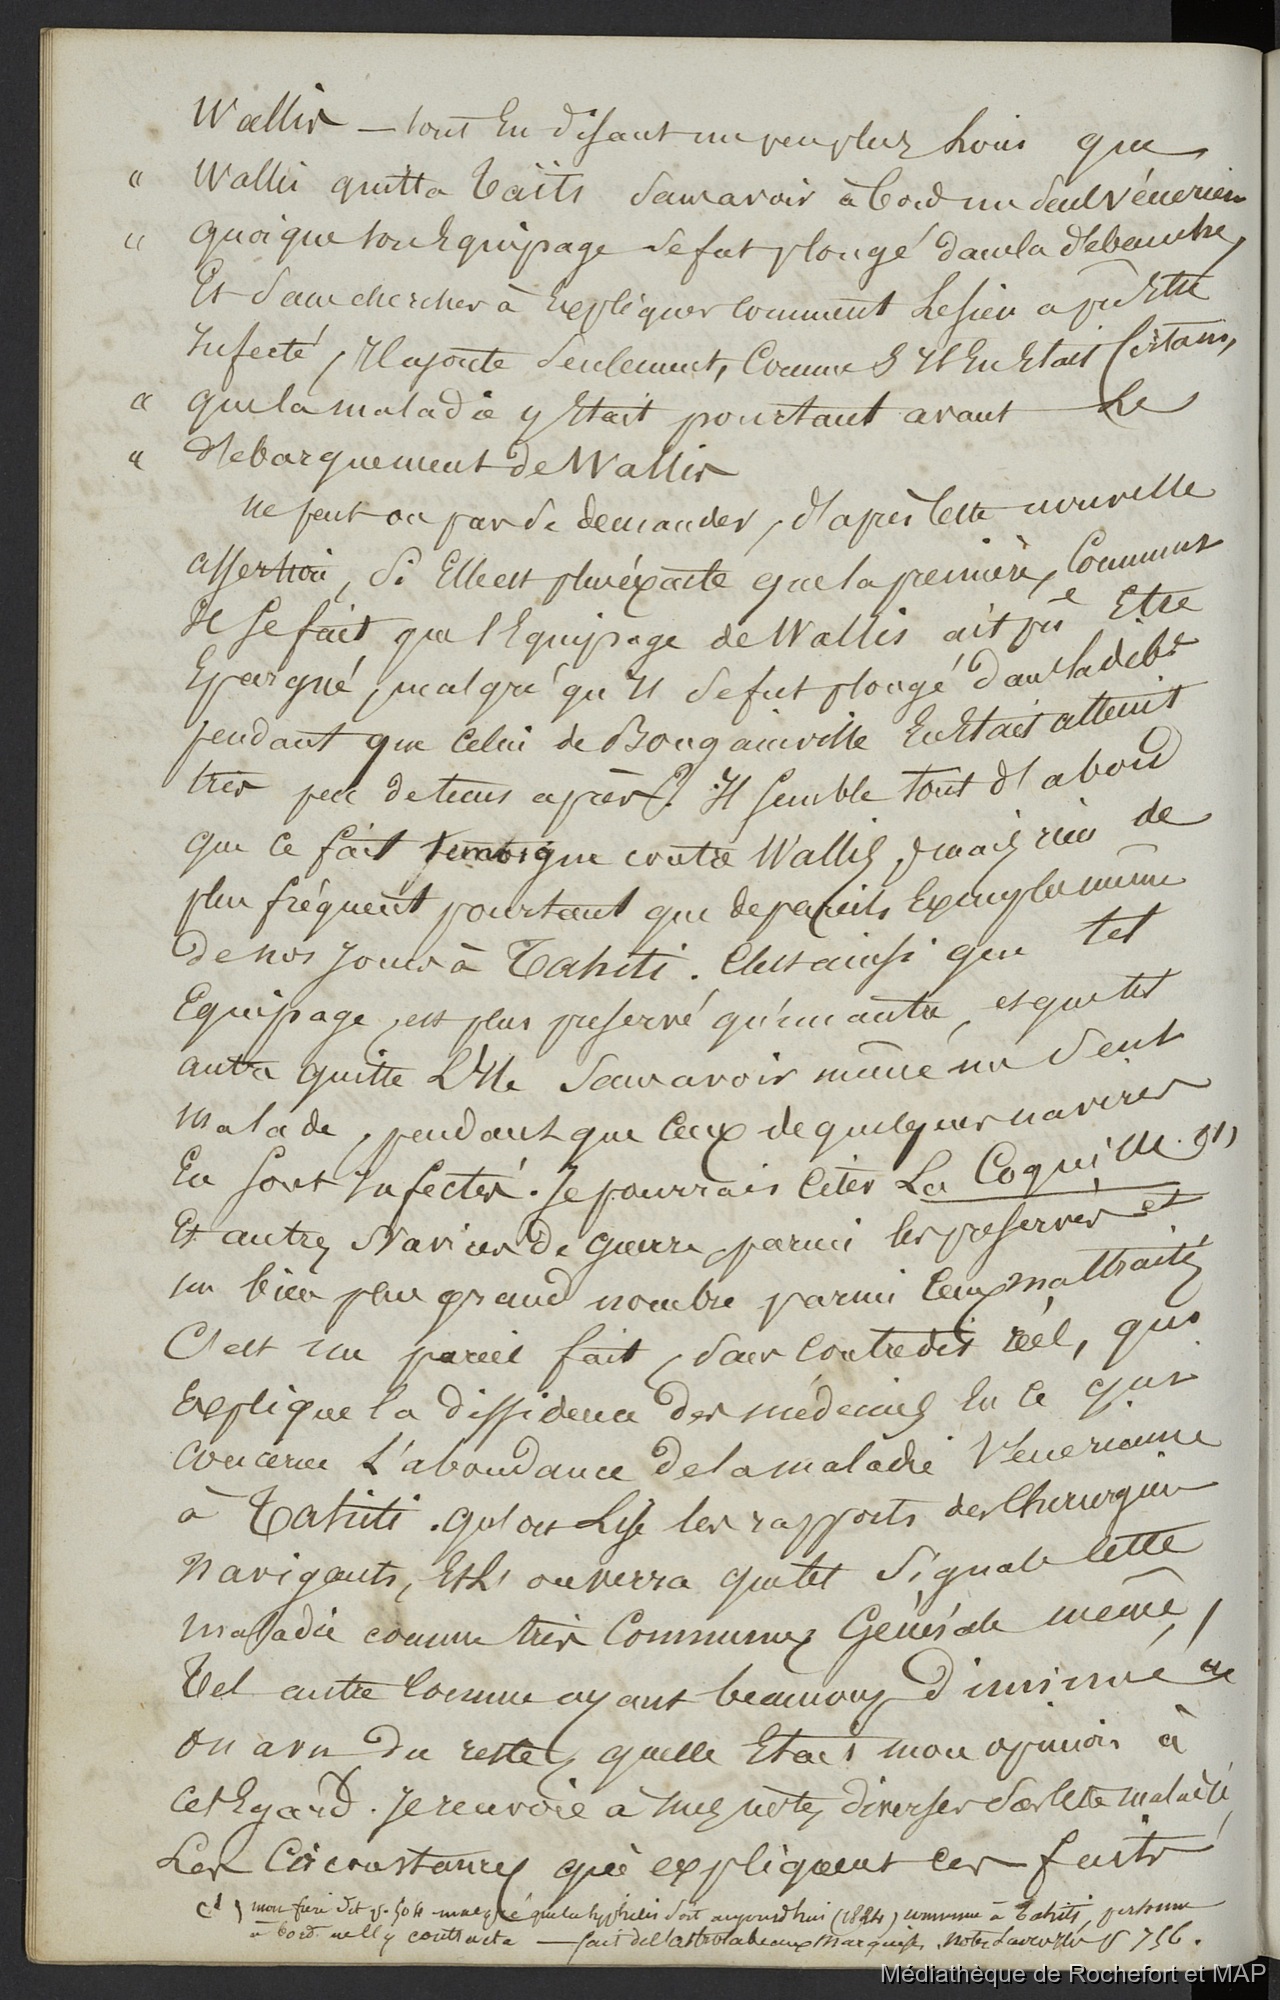 Wallis — tout En disant un peu plus loin que
" Wallis quitta Taïti sans avoir à bord un seul vénérien
" quoique son Equipage se fut plongé dans la débauche,
Et sans chercher à Expliquer comment le sien a pu Etre
Infecté, Il ajoute seulement, Comme S'Il En Etait Certain,
" que la maladie y Etait pourtant avant Le
" débarquement de Wallis
Ne peut on pas se demander, d'après Cette nouvelle
assertion, Si Elle est plus éxacte que la première, Comment
Il Se fait que l'Equipage de Wallis ait pu Etre
Epargné, malgré qu'Il se fut plongé dans la débe
pendant que Celui de Bougainville En Etait atteint
très peu de tems après ? Il Semble tout d'abord
que Ce fait contre Wallis, mais rien de
plus fréquent pourtant que de pareils Exemples même
de nos Jours à Tahiti. C'est ainsi que tel
Equipage, est plus préservé qu'un autre, et que tel
autre quitte L'Ile sans avoir même un seul
malade, pendant que Ceux de quelques navires
En sont Infectés. Je pourrais Citer La Coquille (1)
Et autres Navires de Guerre, parmi les préservés et
un bien plus grand nombre parmi Ceux maltraités
C'est un pareil fait, sans Contredit réel, qui
Explique la dissidence des médecins En Ce qui
concerne L'abondance de la maladie Vénérienne
à Tahiti. Qu'on Lise les rapports des Chirurgiens
Navigants, Et L'on verra que tel Signale Cette
maladie comme très Commune, Générale même,
Tel autre Comme ayant beaucoup diminué &c
On a vu du reste, quelle Etait mon opinion à
Cet Egard. Je renvoie à mes notes diverses sur Cette maladie,
Les Circonstances qui expliquent ces faits
(1) mon frère dit p. 504 malgré que la syphilis soit aujourd'hui (1824) commune à Tahiti, personne
à bord ne l'y contracta — fait de l'astrolabe aux Marquises. p 756.
Médiathèque de Rochefort et MAP